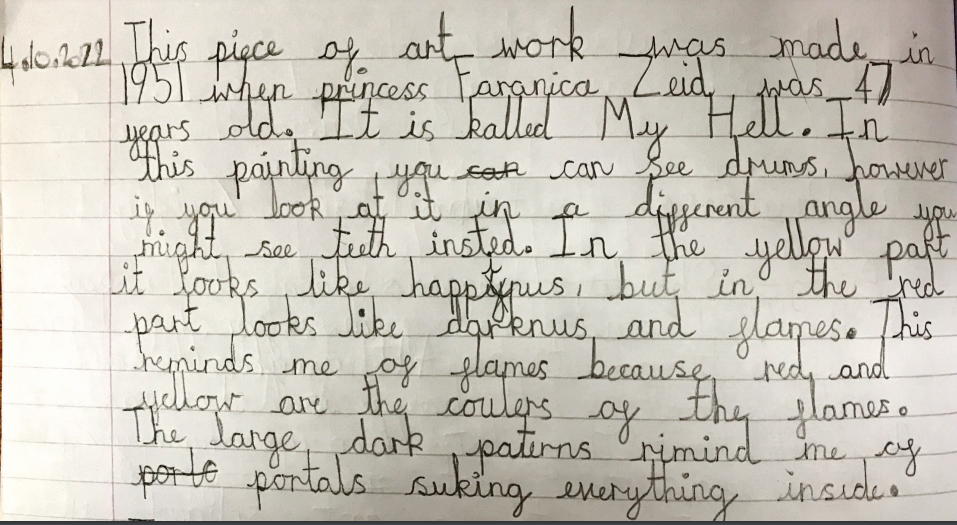 4.10.2022 This piece of art work was made in
1951 when princess Faranica Zeid was 47
years old. It is kalled My Hell. In
this painting, you can can see drums, however
if you look at it in a different angle you
might see teeth insted. In the yellow part
it looks like happynus, but in the red
part looks like darknus and flames. This
reminds me of flames because red and
yellow are the coulers of the flames.
The large dark paterns rimind me of
porte portals suking everything inside.